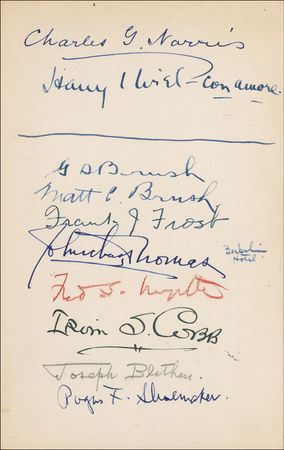 Charles G. Norris
Harry I Wiel - con amore.
G S Brush
Matt C. Brush
Frank J Frost
John Charles Thomas
Berkshire
Hotel
Fred S.
Irvin S. Cobb
Joseph Blethen.
Rogers F. Shoemaker.